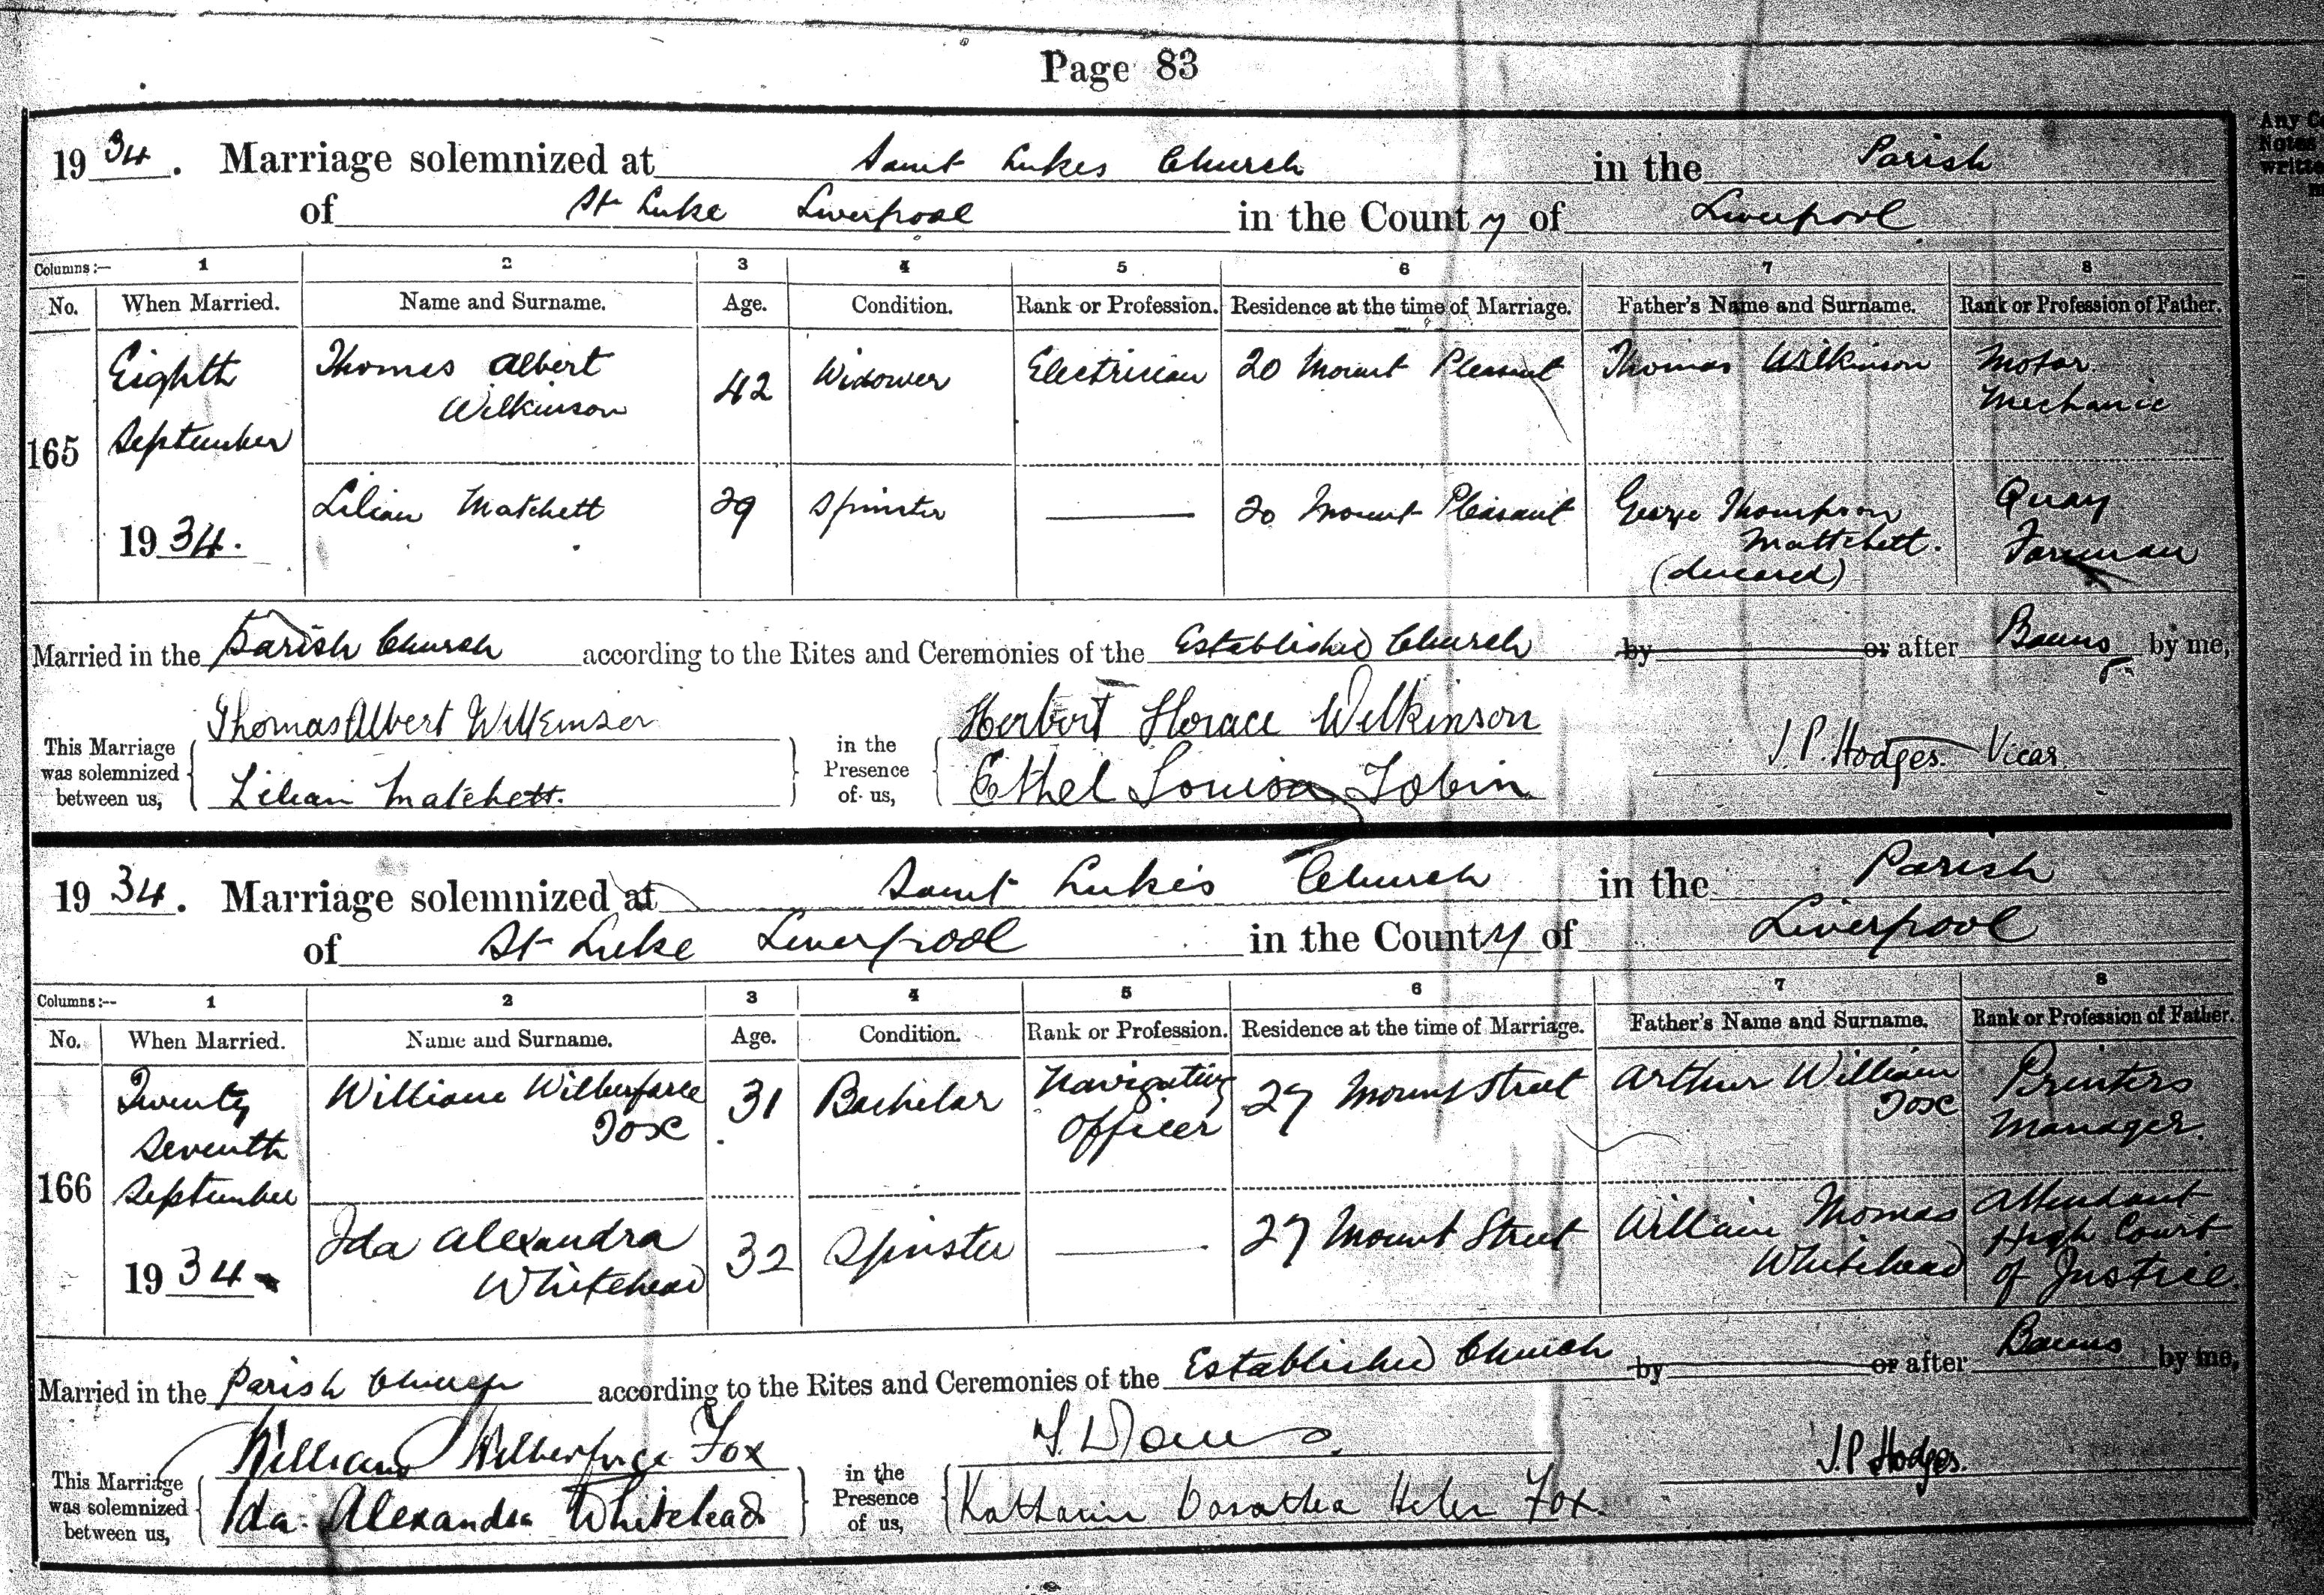 Page 83
Any
Notes
writte
1934. Marriage solemnized at Saint Lukes Church in the Parish
of St Luke Liverpool in the County of Liverpool
Columns:— 1 2 3 4 5 6 7 8
No. When Married. Name and Surname. Age. Condition. Rank or Profession. Residence at the time of Marriage. Father's Name and Surname. Rank or Profession of Father.
165
Eighth
September
1934.
Thomas Albert
Wilkinson
42
Widower
Electrician
20 Mount Pleasant
Thomas Wilkinson
Motor
Mechanic
Lilian Matchett
29
Spinster
20 Mount Pleasant
George Thompson
Mattchett.
(deceased)
Quay
Foreman
Married in the Parish Church according to the Rites and Ceremonies of the Established Church by or after Banns by me,
This Marriage
was solemnized
between us,
Thomas Albert Wilkinson
Lilian Matchett.
in the
Presence
of us,
Herbert Horace Wilkinson
Ethel Louisa Tobin
J. P. Hodges. Vicar.
1934. Marriage solemnized at Saint Luke's Church in the Parish
of St Luke Liverpool in the County of Liverpool
Columns:— 1 2 3 4 5 6 7 8
No. When Married. Name and Surname. Age. Condition. Rank or Profession. Residence at the time of Marriage. Father's Name and Surname. Rank or Profession of Father.
166
Twenty
Seventh
September
1934
William Wilberforce
Fox
31
Bachelor
Navigating
Officer
27 Mount Street
Arthur William
Fox
Printers
Manager.
Ida Alexandra
Whitehead
32
Spinster
27 Mount Street
William Thomas
Whitehead
Attendant
High Court
of Justice
Married in the Parish Church according to the Rites and Ceremonies of the Established Church by or after Banns by me,
This Marriage
was solemnized
between us,
William Wilberforce Fox
Ida Alexandra Whitehead
in the
Presence
of us,
Katharin Dorothea Helen Fox.
J. P Hodges.